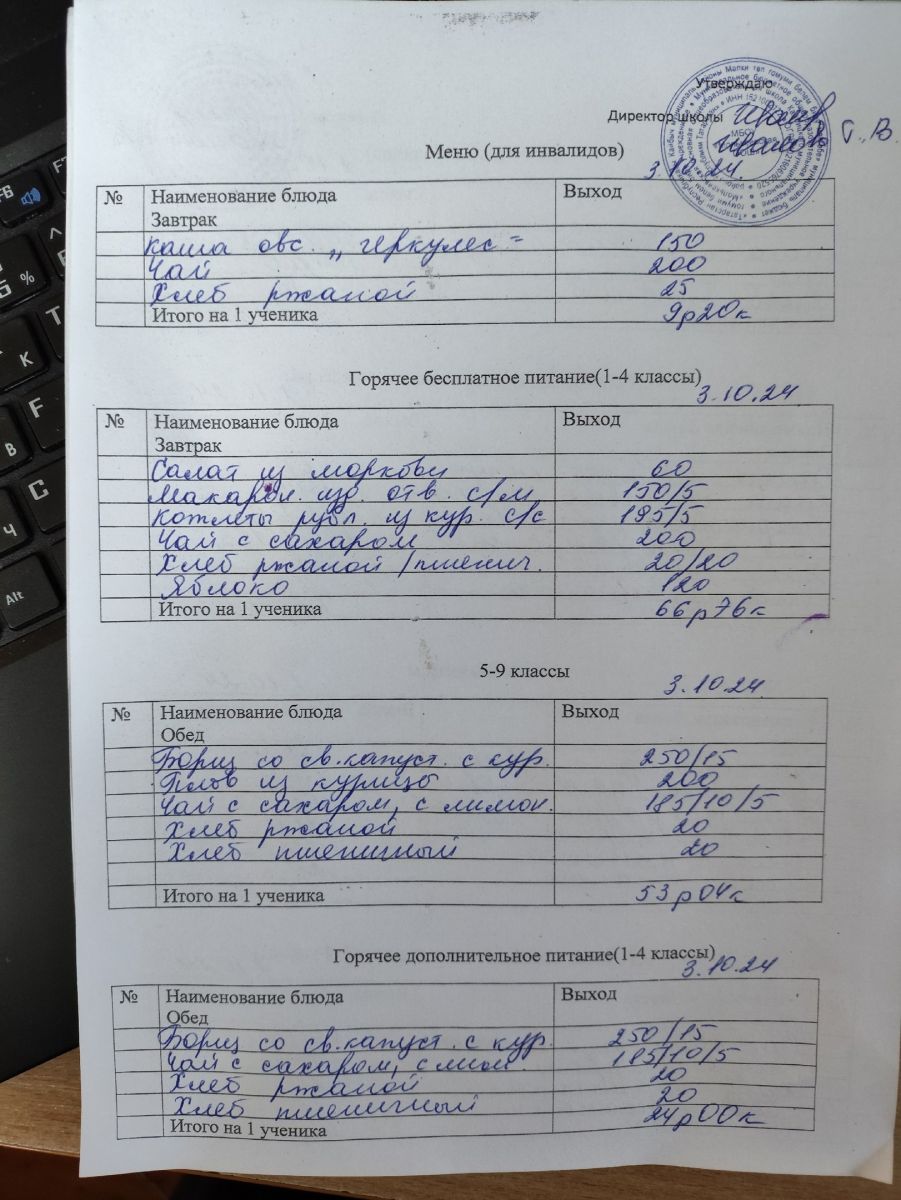 Утверждаю
Директор школы
Г.В.
Меню (для инвалидов)
3.10.24.
№ Наименование блюда Выход
Завтрак
Каша овс. „ геркулес " 150
Чай 200
Хлеб ржаной 25
Итого на 1 ученика 9р20к
Горячее бесплатное питание(1-4 классы)
3.10.24
№ Наименование блюда Выход
Завтрак
Салат из моркови 60
Макарон. изд. отв. с/м 150/5
Котлеты рубл. из кур. с/с 195/5
Чай с сахаром 200
Хлеб ржаной /пшенич. 20/20
Яблоко 120
Итого на 1 ученика 66р76к
5-9 классы
3.10.24
№ Наименование блюда Выход
Обед
Борщ со св.капуст. с кур. 250/15
Плов из курицы 200
Чай с сахаром, с лимон. 185/10/5
Хлеб ржаной 20
Хлеб пшеничный 20
Итого на 1 ученика 53р04к
Горячее дополнительное питание(1-4 классы)
3.10.24
№ Наименование блюда Выход
Обед
Борщ со св.капуст. с кур. 250/15
Чай с сахаром, с лимон. 185/10/5
Хлеб ржаной 20
Хлеб пшеничный 20
Итого на 1 ученика 24р00к